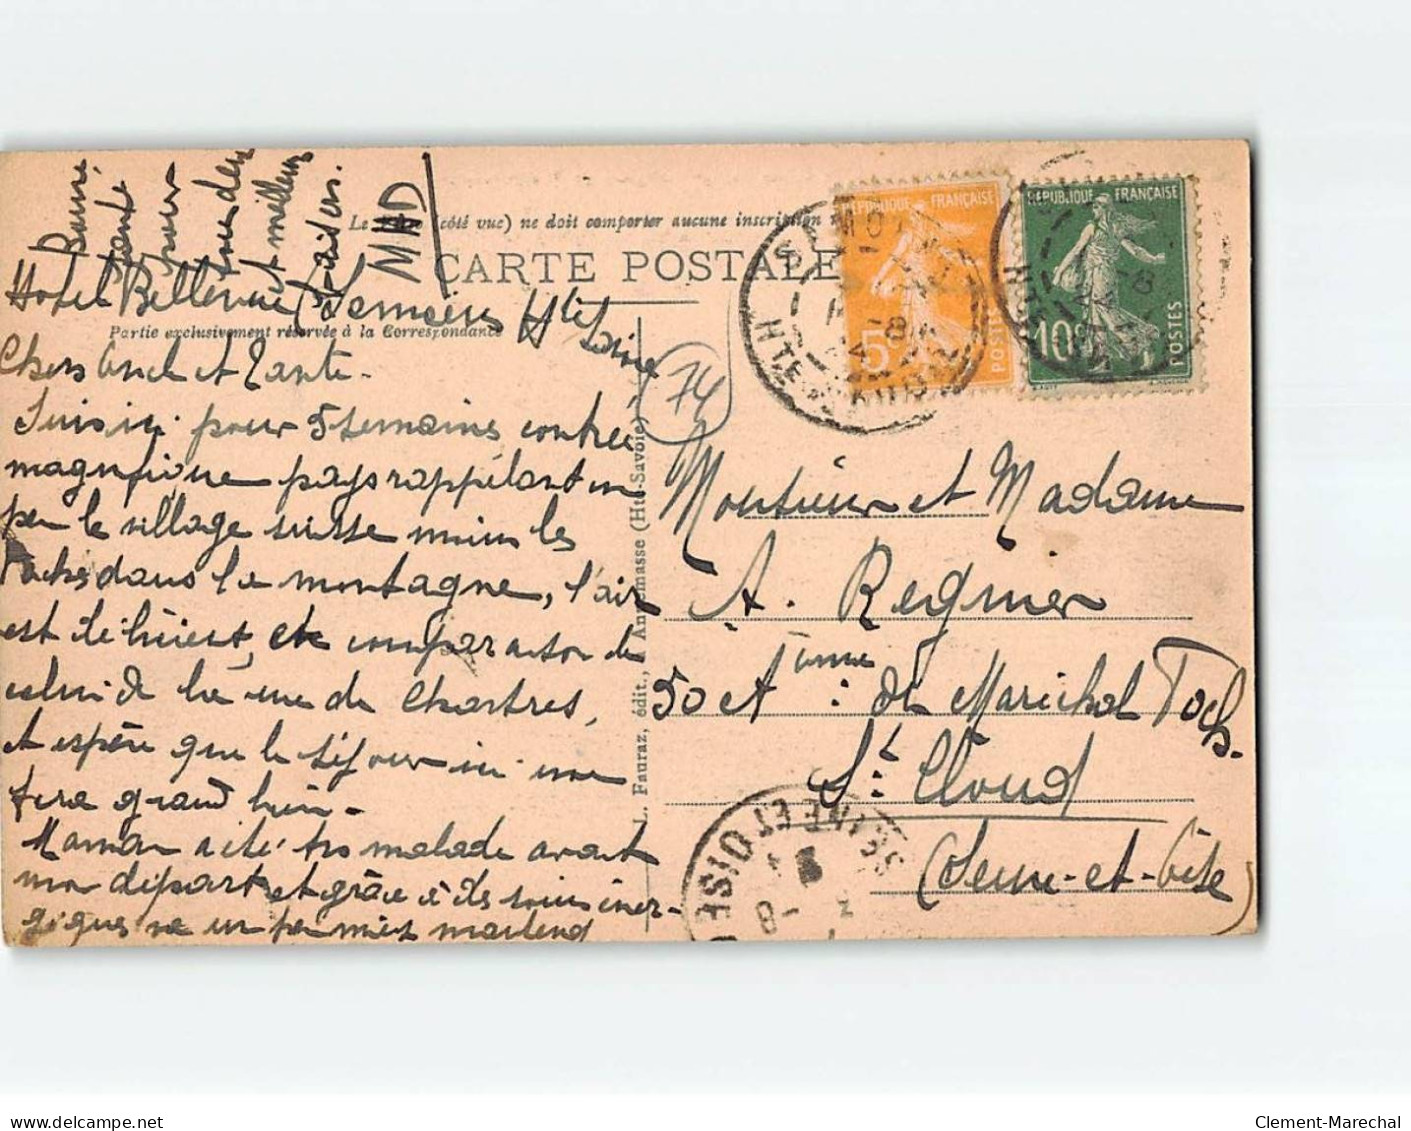 Bonne
santé
pour
tous deux
et meilleurs
baisers.
Le (côté vue) ne doit comporter aucune inscription
CARTE POSTALE
Partie exclusivement réservée à la Correspondance
RÉPUBLIQUE FRANÇAISE
5c
POSTES
RÉPUBLIQUE FRANÇAISE
10c
POSTES
SAMO
HTE SAVOIE
Hotel Bellevue Samoëns Hte
Chers Oncle et Tante -
Suis ici pour 5 semaines contrée
magnifique pays rappelant un
peu le village suisse moins les
vaches dans la montagne, l'air
est délicieux, et comparaison de
celui de la rue de Chartres,
et espère que le séjour ici me
fera grand bien -
Maman a été très malade avant
mon départ et grâce à des soins éner-
giques va un peu mieux maintenant
74
L. Fauraz, édit., Annemasse (Hte-Savoie)
Monsieur et Madame
A. Regnier
50 de Maréchal Foch.
St Cloud
(Seine-et-Oise)
SEINE ET OISE
8 -
Clement-Marechal